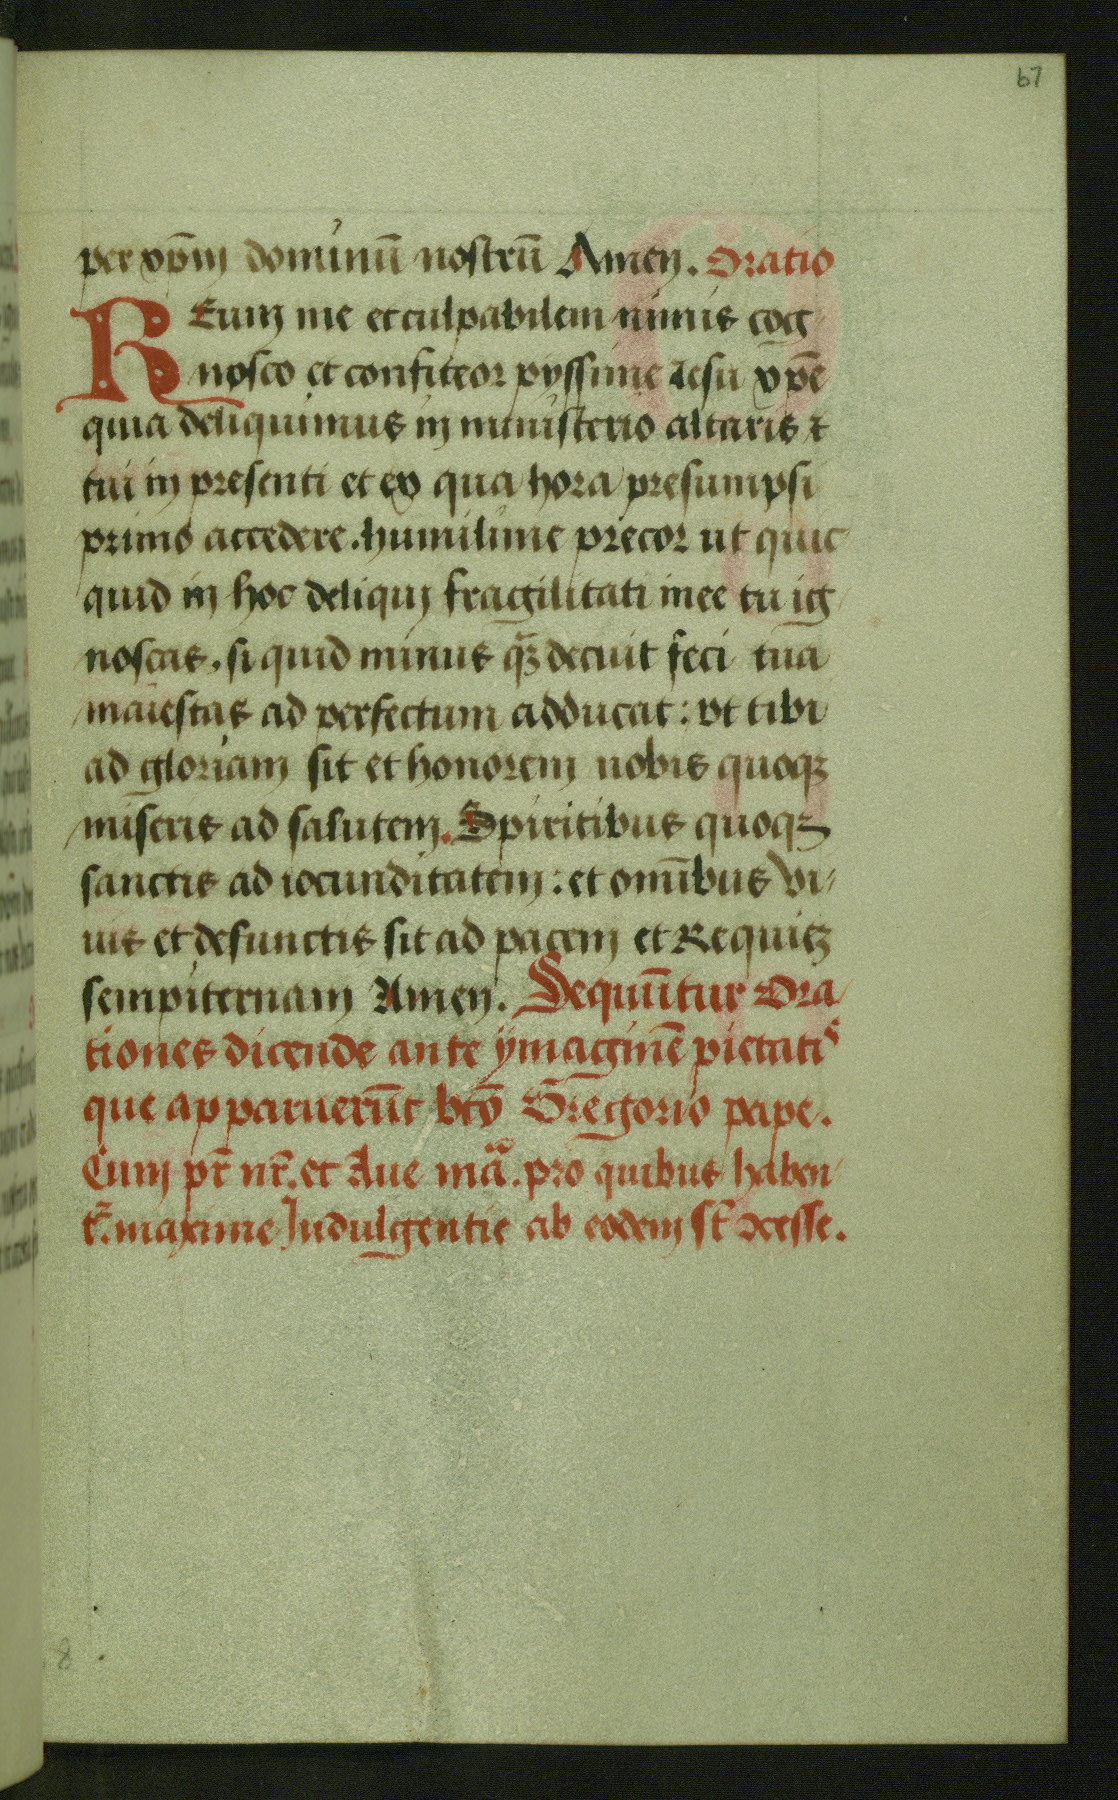 67
per xp̄m dominū nostrū Amen. Oratio
REum me et culpabilem nimis cog
nosco et confiteor pyssime Iesu xp̄e
quia deliquimus in ministerio altaris
tui in presenti et ex qua hora presumpsi
primo accedere. humilime precor ut quic
quid in hoc deliqui fragilitati mee tu ig
noscas. si quid minus qꝫ̄ decuit feci tua
maiestas ad perfectum adducat: vt tibi
ad gloriam sit et honorem nobis quoqꝫ
miseris ad salutem. Spiritibus quoqꝫ
sanctis ad iocunditatem: et omībus vi
uis et defunctis sit ad pacem et Requiē
sempiternam Amen. Sequūtur Ora
tiones dicende ante ymaginē pietatis
que apparuerūt bt̄o Gregorio pape.
Cum pr̄ nr̄. et Aue ma͞. pro quibus haben
tr̄. maxime Indulgentie ab eodem
8